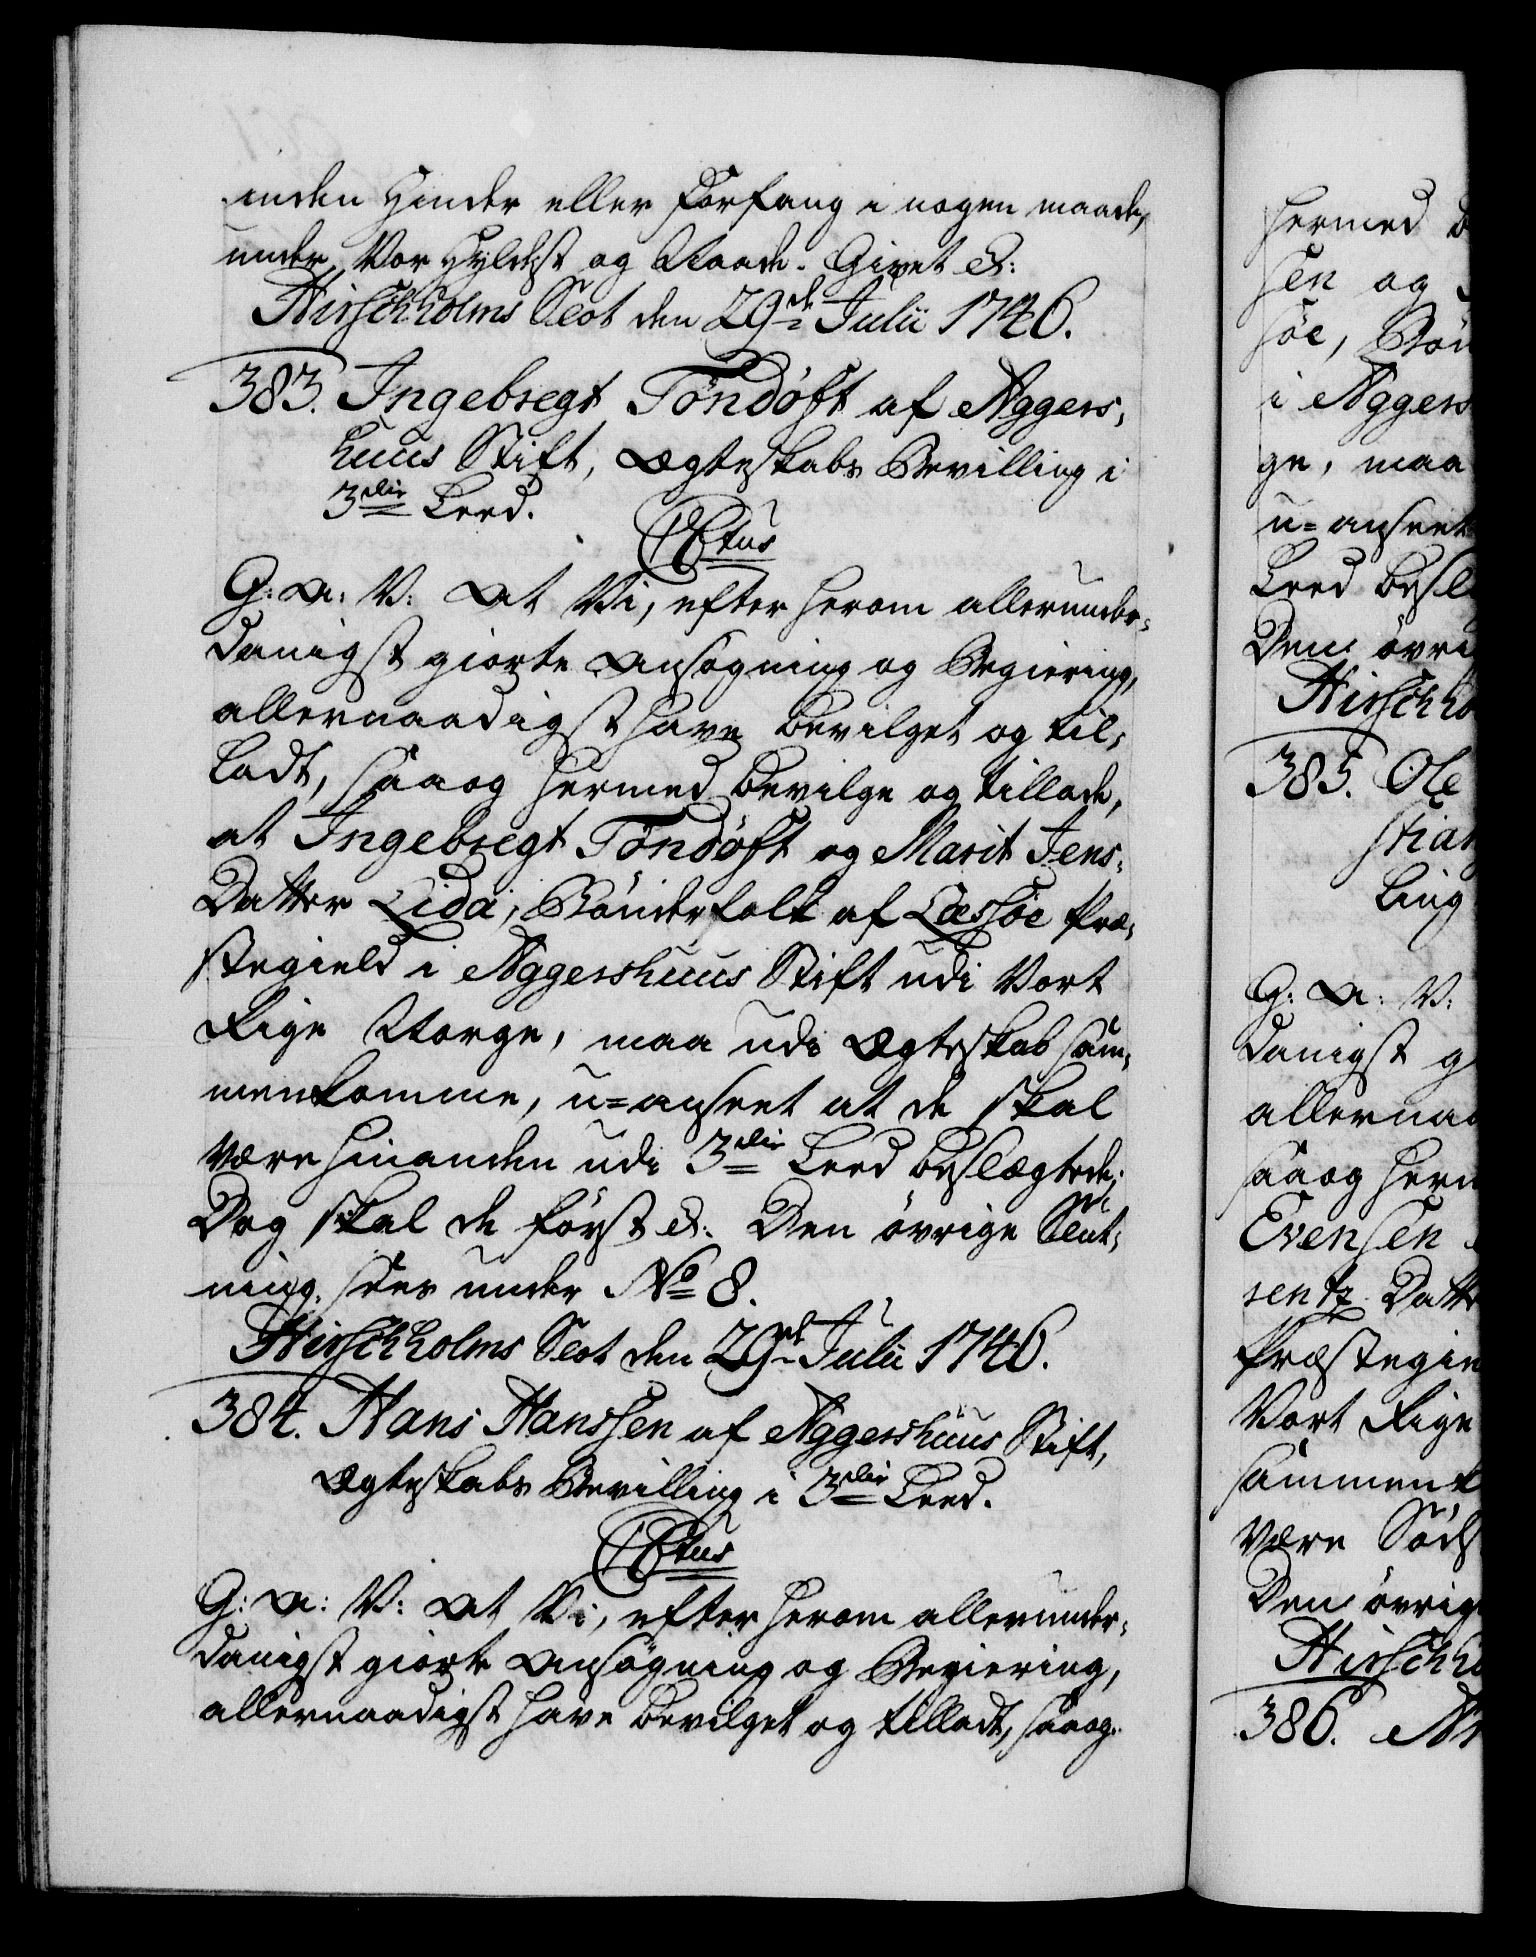 inden Hinder eller Forfang i nogen maade,
under Vor Hyldest og Naade. Givet &:
Hirschholms Slot den 29de Julii 1746.
383. Ingebregt Töndöft af Aggers-
huus Stift, Ægteskabs Bevilling i
3die Leed.
CStus
G: A: V: At Vi, efter herom allerunder-
danigst giorte Ansøgning og Begiering,
allernaadigst have bevilget og til-
ladt, saa og hermed bevilge og tillade,
at Ingebregt Töndöft og Marit Jens-
Datter Lida, Bönderfolk af Læssöe Præ-
stegield i Aggershuus Stift udi Vort
Rige Norge, maa udi Ægteskab sam-
menkomme, u=anseet at de skal
være hinanden udi 3die Leed beslægtede;
Dog skal de först &: Den övrige Slut-
ning sees under No 8.
Hirschholms Slot den 29de Julii 1746.
384. Hans Hanssen af Aggershuus Stift,
Ægteskabs Bevilling i 3die Leed.
CStus
G: A: V: At Vi, efter herom allerunder-
danigst giorte Ansøgning og Begiering,
allernaadigst have bevilget og tilladt, saa og
hermed
sen og
söe, Bön
i Aggers
ge, maa
u=anseet
Leed besl
Den övri
Hirschho
385. Ole
stian
ling
G: A: V:
danigst g
allernaa
saa og her
Evensen
sentz Datt
Præstegie
Vort Rige
sammenk
være Söds
Den övrig
Hirschho
386.